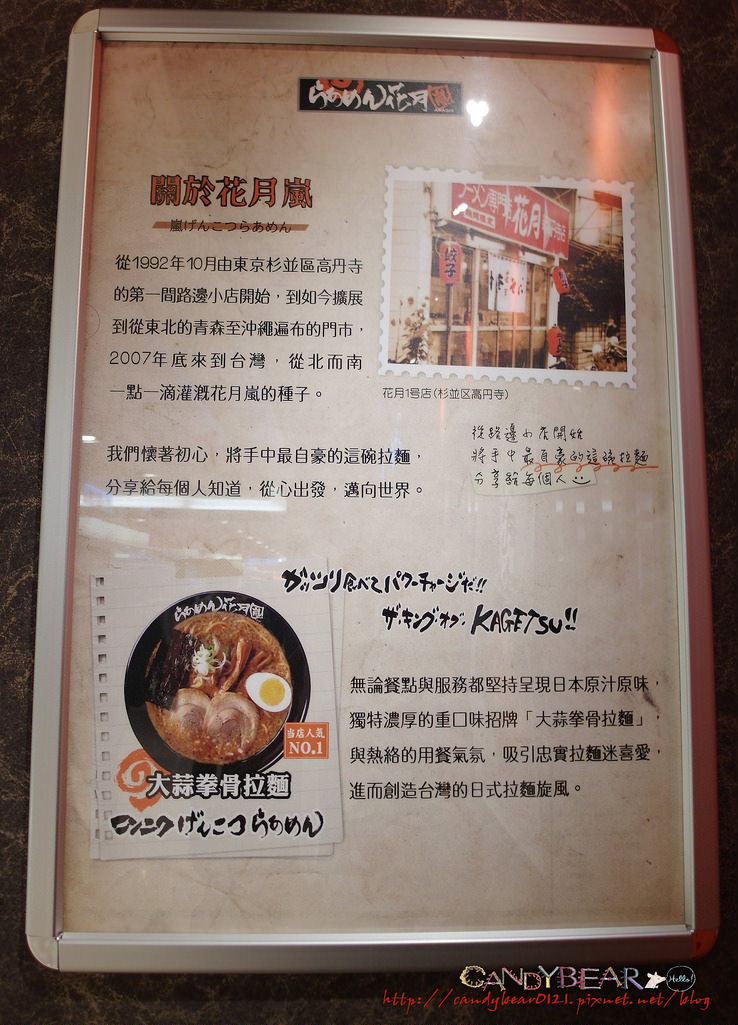 らあめん花月嵐
ARASHI
關於花月嵐
嵐げんこつらあめん
從1992年10月由東京杉並區高円寺
的第一間路邊小店開始，到如今擴展
到從東北的青森至沖繩遍布的門市，
2007年底來到台灣，從北而南
一點一滴灌溉花月嵐的種子。
ラーメン専門
花月
餃子
花月1号店(杉並区高円寺)
我們懷著初心，將手中最自豪的這碗拉麵，
分享給每個人知道，從心出發，邁向世界。
從路邊小店開始
將手中最自豪的這碗拉麵
分享給每個人
ガッツリ食べてパワーチャージだ!!
ザ・キング・オブ・KAGETSU!!
らあめん花月嵐
当店人気
NO.1
大蒜拳骨拉麵
ニンニクげんこつらあめん
無論餐點與服務都堅持呈現日本原汁原味，
獨特濃厚的重口味招牌「大蒜拳骨拉麵」，
與熱絡的用餐氣氛，吸引忠實拉麵迷喜愛，
進而創造台灣的日式拉麵旋風。
CANDYBEAR
Hello!
http://candybear0121.pixnet.net/blog